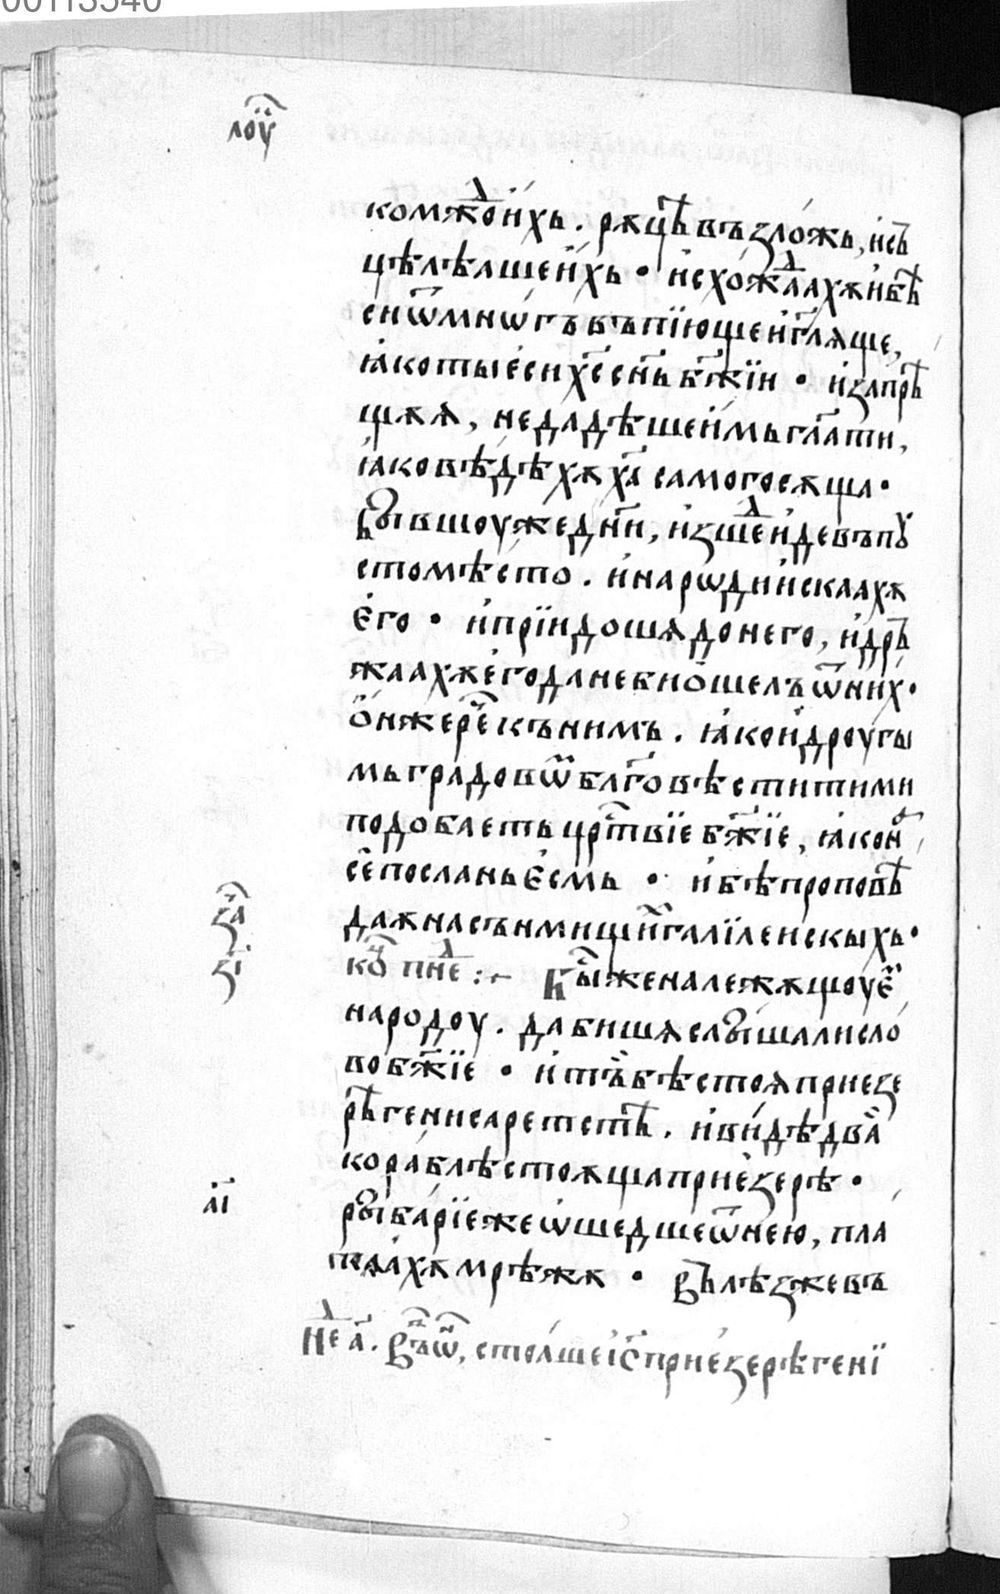 00113540
лоу҃
комꙋждои҆хь. рѫцѣвъзложь, и҆сⷪ҇
цѣлѣꙗшеи҆́хь • и҆схо́ждаахѫи҆бѣ
сиѡ҃мнѡ́гъвъпїюшеи҆гл҃ѧще,
ꙗ҆котыеси хс҃сн҃ь бж҃їи • и҆запрѣ
щѫѧ, недадѣшеи҆мьгл҃ати,
ꙗ҆ковѣдѣхѫ ха҃ самогосѫща•
Бывшоужедн҃и, и҆зшеⷣи҆девъпꙋ
стомѣсто. и҆нарѡдии҆скаахѫ
е҆го • и҆прїидошѧдонего, и҆дръ
жаахѫе҆годаневиѡ҆шелъѿних•
ѻ҆нжереⷱ҇кънимъ. ꙗ҆кои҆дроугы
мьградовѡⷨ҇благовѣститими
подобаеть црⷭ҇твїебж҃їе, ꙗ҆кона
сѐпосланьѐсмь • и҆бѣпроповѣ
даѫнасънмищиⷯгалїлеискыхь•
за҃
коⷰ҇ пнеⷣ :~ Быⷭ҇женалежѫщоуе҆мꙋ
зі҃
народоу. дабишѧслы́шалисло́
вобж҃їе • и҆тъ́бѣстоѧприезе
рѣгенисаретстѣ. и҆ви́дѣдва̀
кораблѣстоѧщаприе҆зерѣ •
рыба́рїежеѡ҆шедшеѿнею, пла
аі҃
каахѫмрѣжѫ • Вълѣзжевъ
Неⷣ а҃. Въѡⷩ҇, стоаше і҆с҃прие҆зерѣгенї